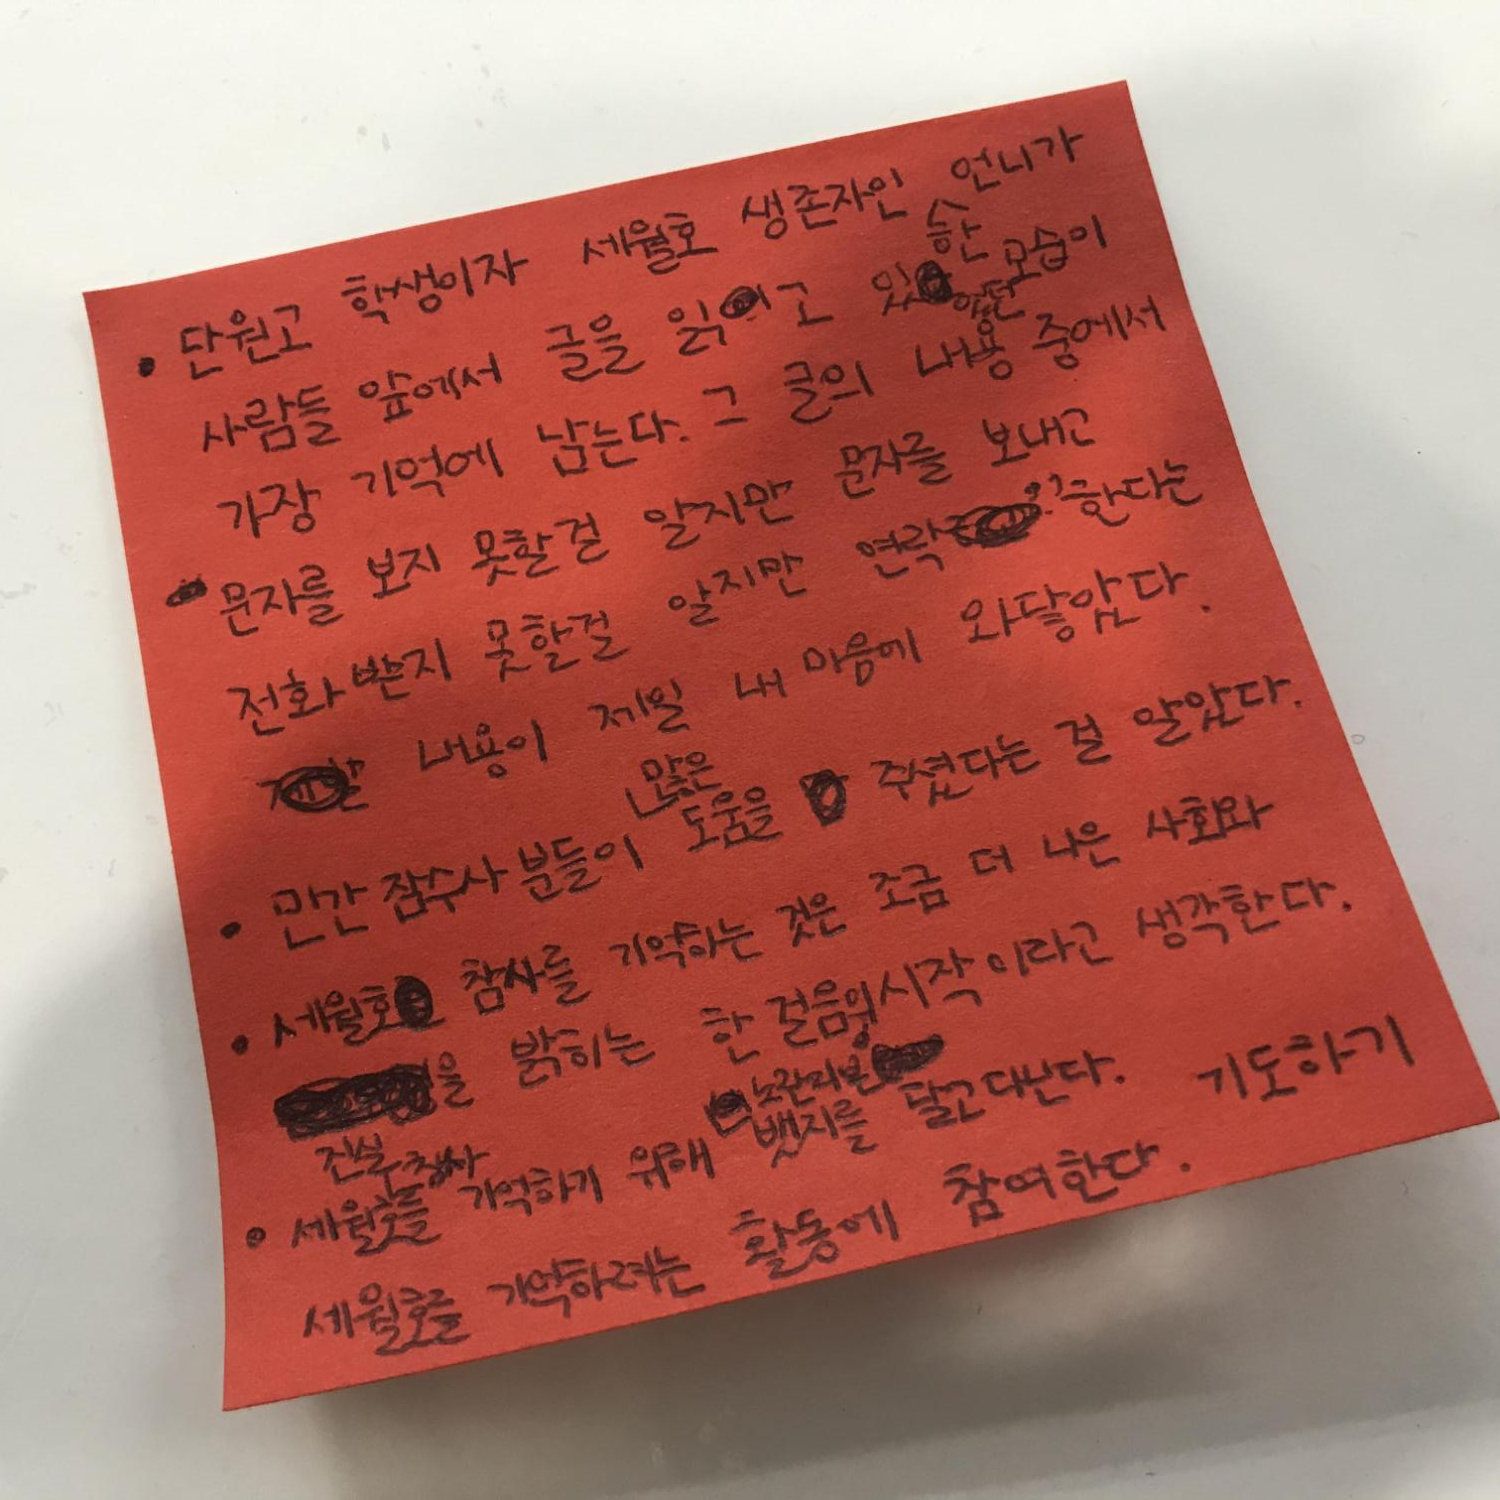 • 단원고 학생이자 세월호 생존자인 언니가
사람들 앞에서 글을 읽고 있 슬픈 모습이
가장 기억에 남는다. 그 글의 내용 중에서
문자를 보지 못할걸 알지만 문자를 보내고
전화 받지 못할걸 알지만 연락 한다는
내용이 제일 내 마음에 와닿았다.
• 민간 잠수사 분들이 많은 도움을 주셨다는 걸 알았다.
• 세월호 참사를 기억하는 것은 조금 더 나은 사회와
진실을 밝히는 한 걸음의 시작이라고 생각한다.
• 세월호를 기억하기 위해 노란리본 뱃지를 달고 다닌다. 기도하기
세월호를 기억하려는 활동에 참여한다.